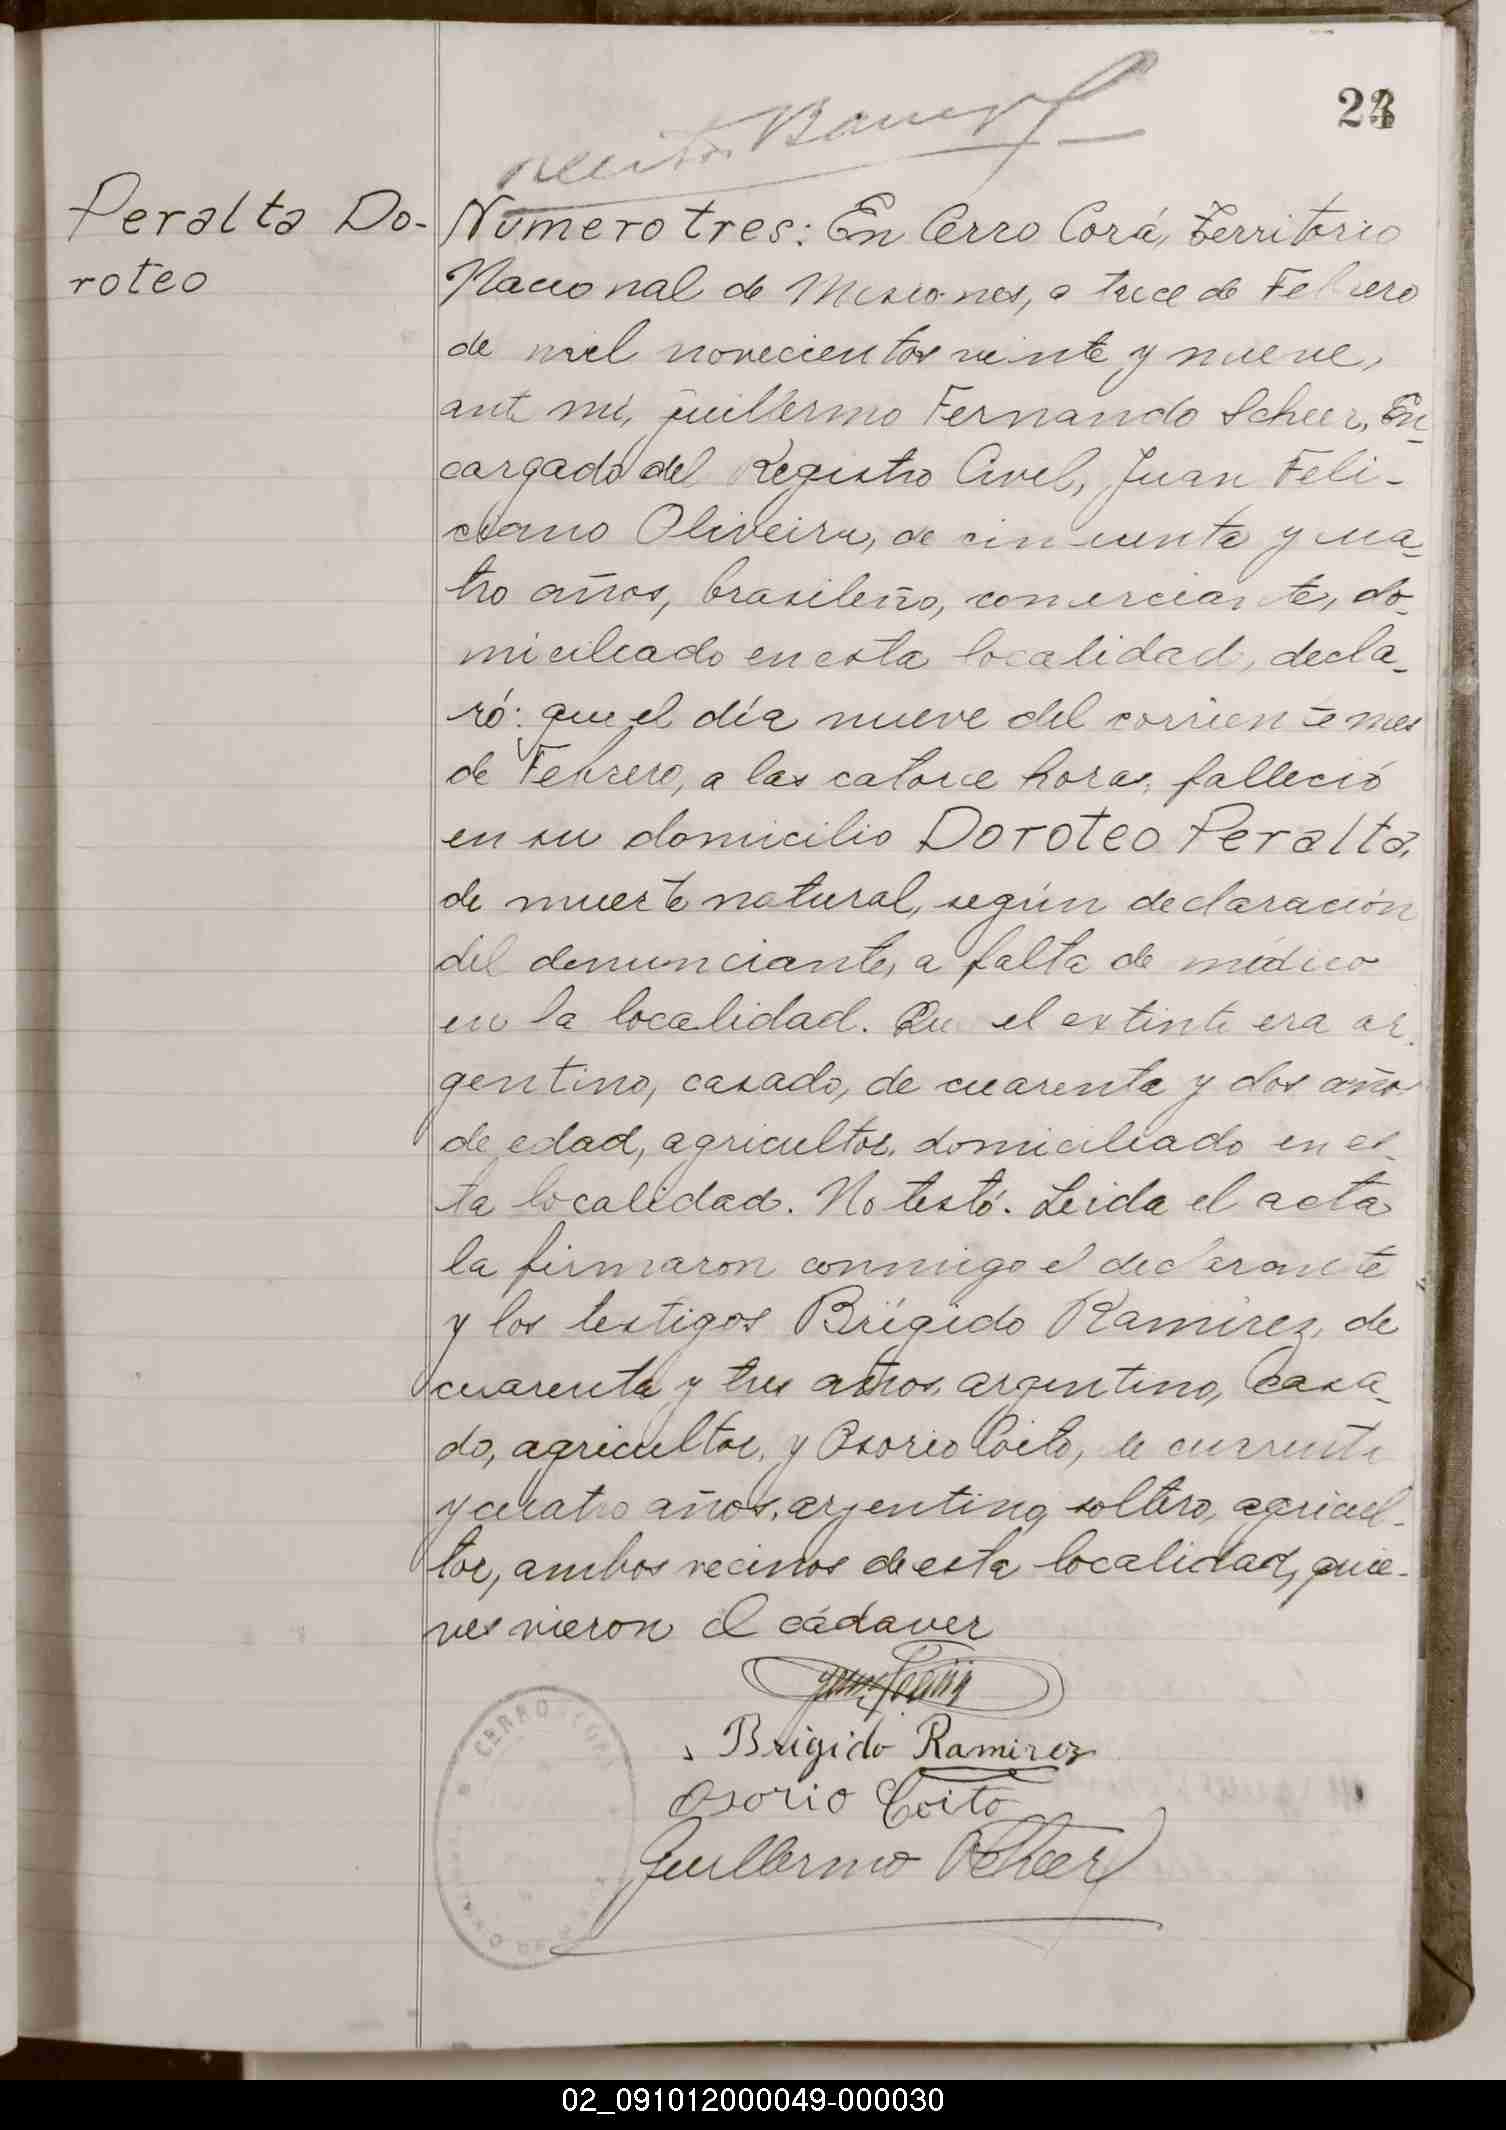 23
Peralta Do-
roteo
Número tres: En Cerro Corá, Territorio
Nacional de Misiones, a trece de Febrero
de mil novecientos veinte y nueve,
ante mí, Guillermo Fernando Scheer, En-
cargado del Registro Civil, Juan Feli-
ciano Oliveira, de cincuenta y cua-
tro años, brasileño, comerciante, do-
miciliado en esta localidad, decla-
ró: que el día nueve del corriente mes
de Febrero, a las catorce horas, falleció
en su domicilio Doroteo Peralta,
de muerte natural, según declaración
del denunciante, a falta de médico
en la localidad. Que el extinto era ar-
gentino, casado, de cuarenta y dos años
de edad, agricultor, domiciliado en es-
ta localidad. No testó. Leida el acta
la firmaron conmigo el declarante
y los testigos Brígido Ramírez, de
cuarenta y tres años, argentino, casa-
do, agricultor, y Osorio Coito, de cuarenta
y cuatro años, argentino, soltero, agricul-
tor, ambos vecinos de esta localidad, quie-
nes vieron el cádaver
Brigido Ramirez
Osorio Coito
Guillermo Scheer
CERRO CORÁ
02_091012000049-000030